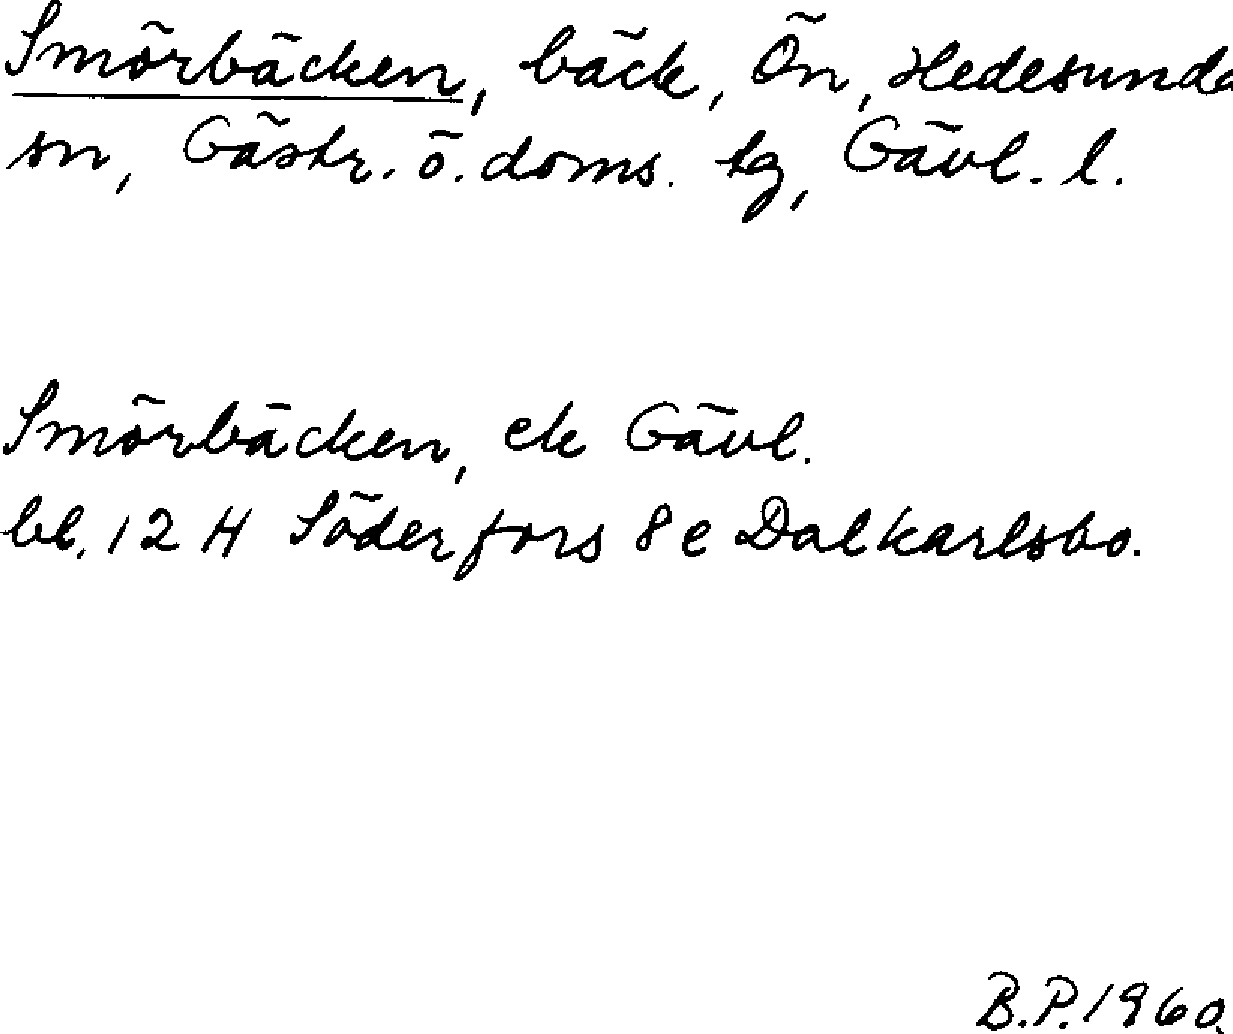 Smörbäcken, bäck, Ön, Hedesunda
sn, Gästr. ö. doms. tg, Gävl. l.
Smörbäcken, ek Gävl.
bl. 12 H Söderfors 8 e Dalkarlsbo.
B.P. 1960.